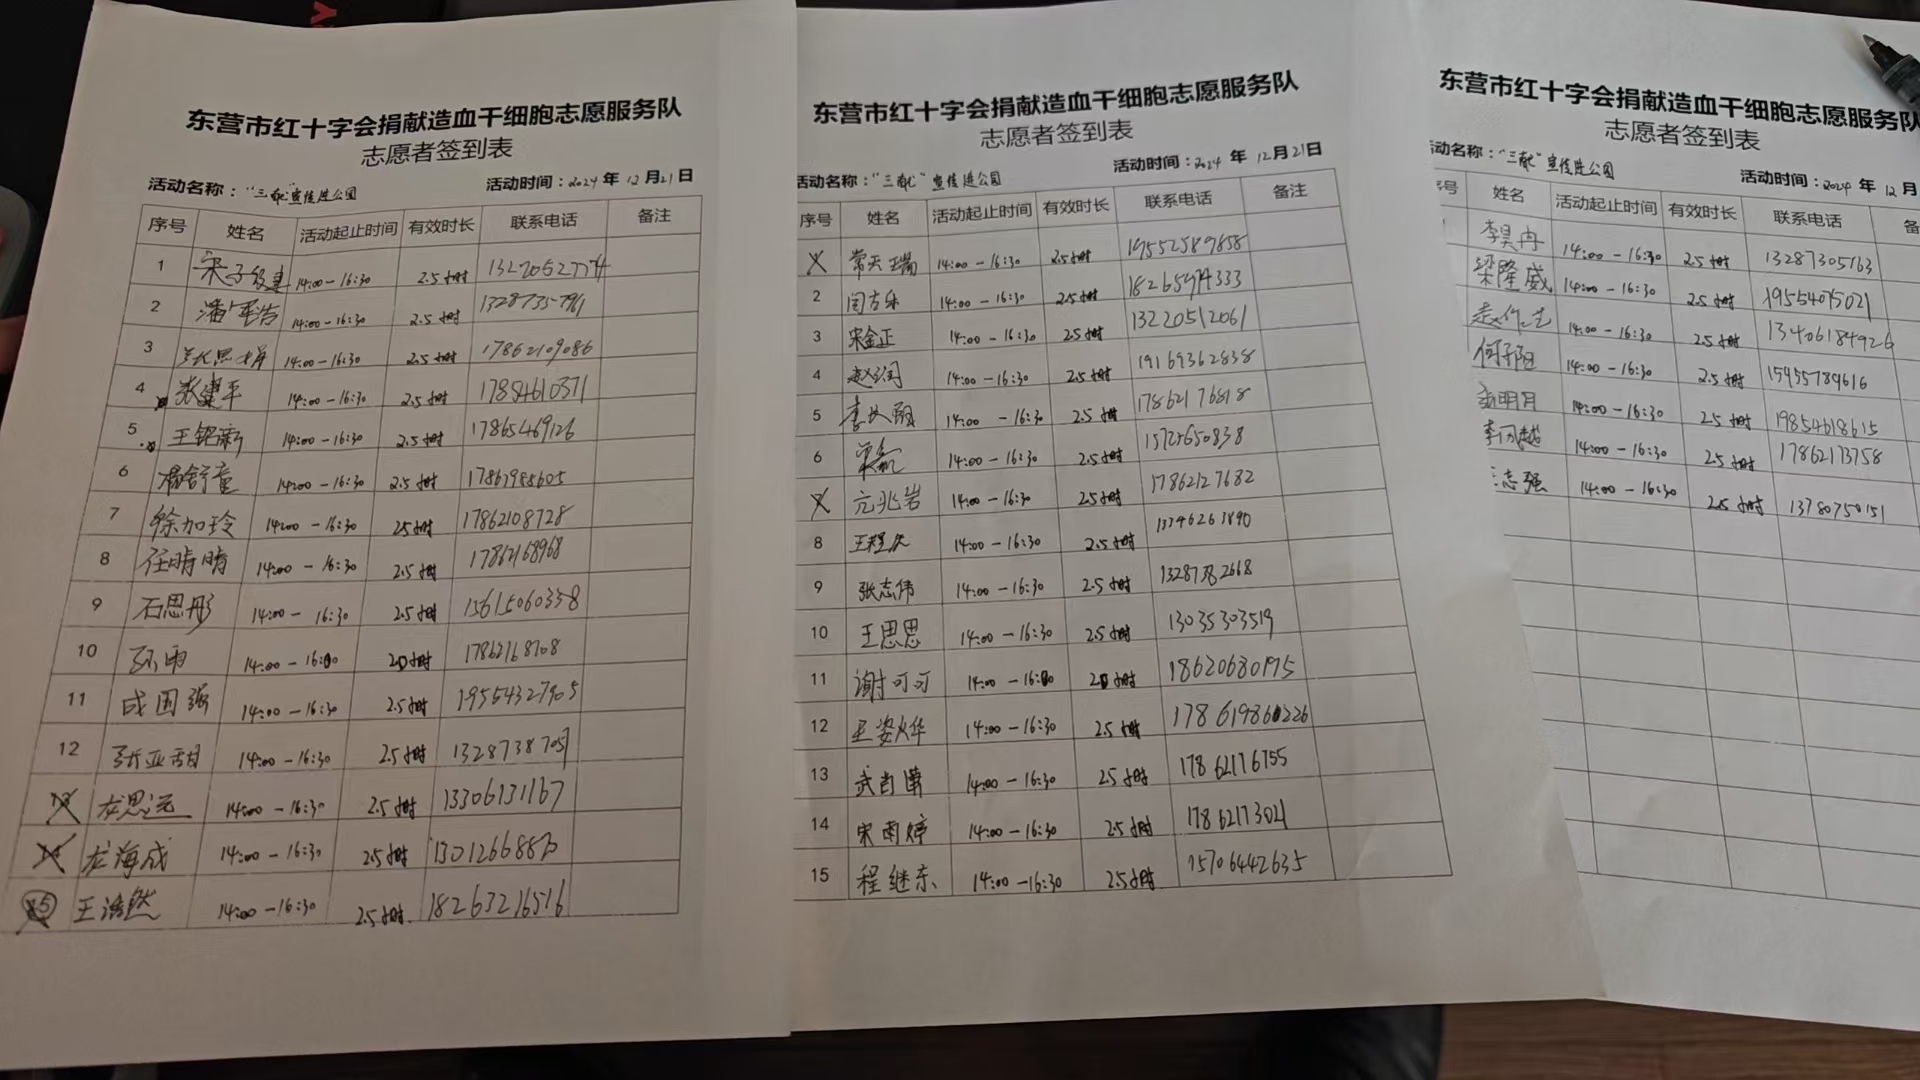 东营市红十字会捐献造血干细胞志愿服务队
志愿者签到表
活动名称："三献"宣传进公园 活动时间：2024 年 12月21日
序号 姓名 活动起止时间 有效时长 联系电话 备注
1 14:00-16:30 2.5小时
2 潘 浩 14:00-16:30 2.5小时
3 14:00-16:30 2.5小时 17862109086
4 张建平 14:00-16:30 2.5小时 17854610371
5 王铭 14:00-16:30 2.5小时 17865469126
6 杨舒童 14:00-16:30 2.5小时
7 徐加玲 14:00-16:30 2.5小时 17862108728
8 任晴晴 14:00-16:30 2.5小时 17862168968
9 石思彤 14:00-16:30 2.5小时 15615060358
10 孙雨 14:00-16:00 20小时 17862168708
11 成国强 14:00-16:30 2.5小时 19554327905
12 张亚 14:00-16:30 2.5小时
龙思远 14:00-16:30 2.5小时 13306131167
龙海成 14:00-16:30 2.5小时
15 王浩然 14:00-16:30 2.5小时 18263216516
东营市红十字会捐献造血干细胞志愿服务队
志愿者签到表
活动名称："三献"宣传进公园 活动时间：2024 年 12月21日
序号 姓名 活动起止时间 有效时长 联系电话 备注
常天瑞 14:00-16:30 2.5小时 19552589858
2 闫吉乐 14:00-16:30 2.5小时
3 宋金正 14:00-16:30 2.5小时 13220512061
4 赵 14:00-16:30 2.5小时 19169362838
5 李 14:00-16:30 2.5小时 17862176818
6 14:00-16:30 2.5小时
7 亓兆岩 14:00-16:30 2.5小时 17862127682
8 王程 14:00-16:30 2.5小时
9 张志伟 14:00-16:30 2.5小时
10 王思思 14:00-16:30 2.5小时 13035303519
11 谢可可 14:00-16:00 20小时 18620680195
12 王姿烨 14:00-16:30 2.5小时
13 武肖 14:00-16:30 2.5小时 17862176755
14 宋雨婷 14:00-16:30 2.5小时 17862173021
15 程继东 14:00-16:30 2.5小时 15706442635
东营市红十字会捐献造血干细胞志愿服务队
志愿者签到表
活动名称："三献"宣传进公园 活动时间：2024 年 12月
号 姓名 活动起止时间 有效时长 联系电话 备
李昊冉 14:00-16:30 2.5小时 13287305163
梁隆威 14:00-16:30 2.5小时 19554075021
14:00-16:30 2.5小时 13406184926
何子阳 14:00-16:30 2.5小时 15955789616
明月 14:00-16:30 2.5小时 19854618615
李 越 14:00-16:30 2.5小时 17862173758
王志强 14:00-16:30 2.5小时 13780750151